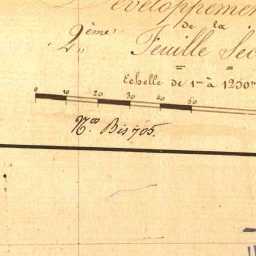 Développement
de la
2ème Feuille Sec
Echelle de 1m à 1250m
0 10 20 30 40 50
Nos Bis 705.